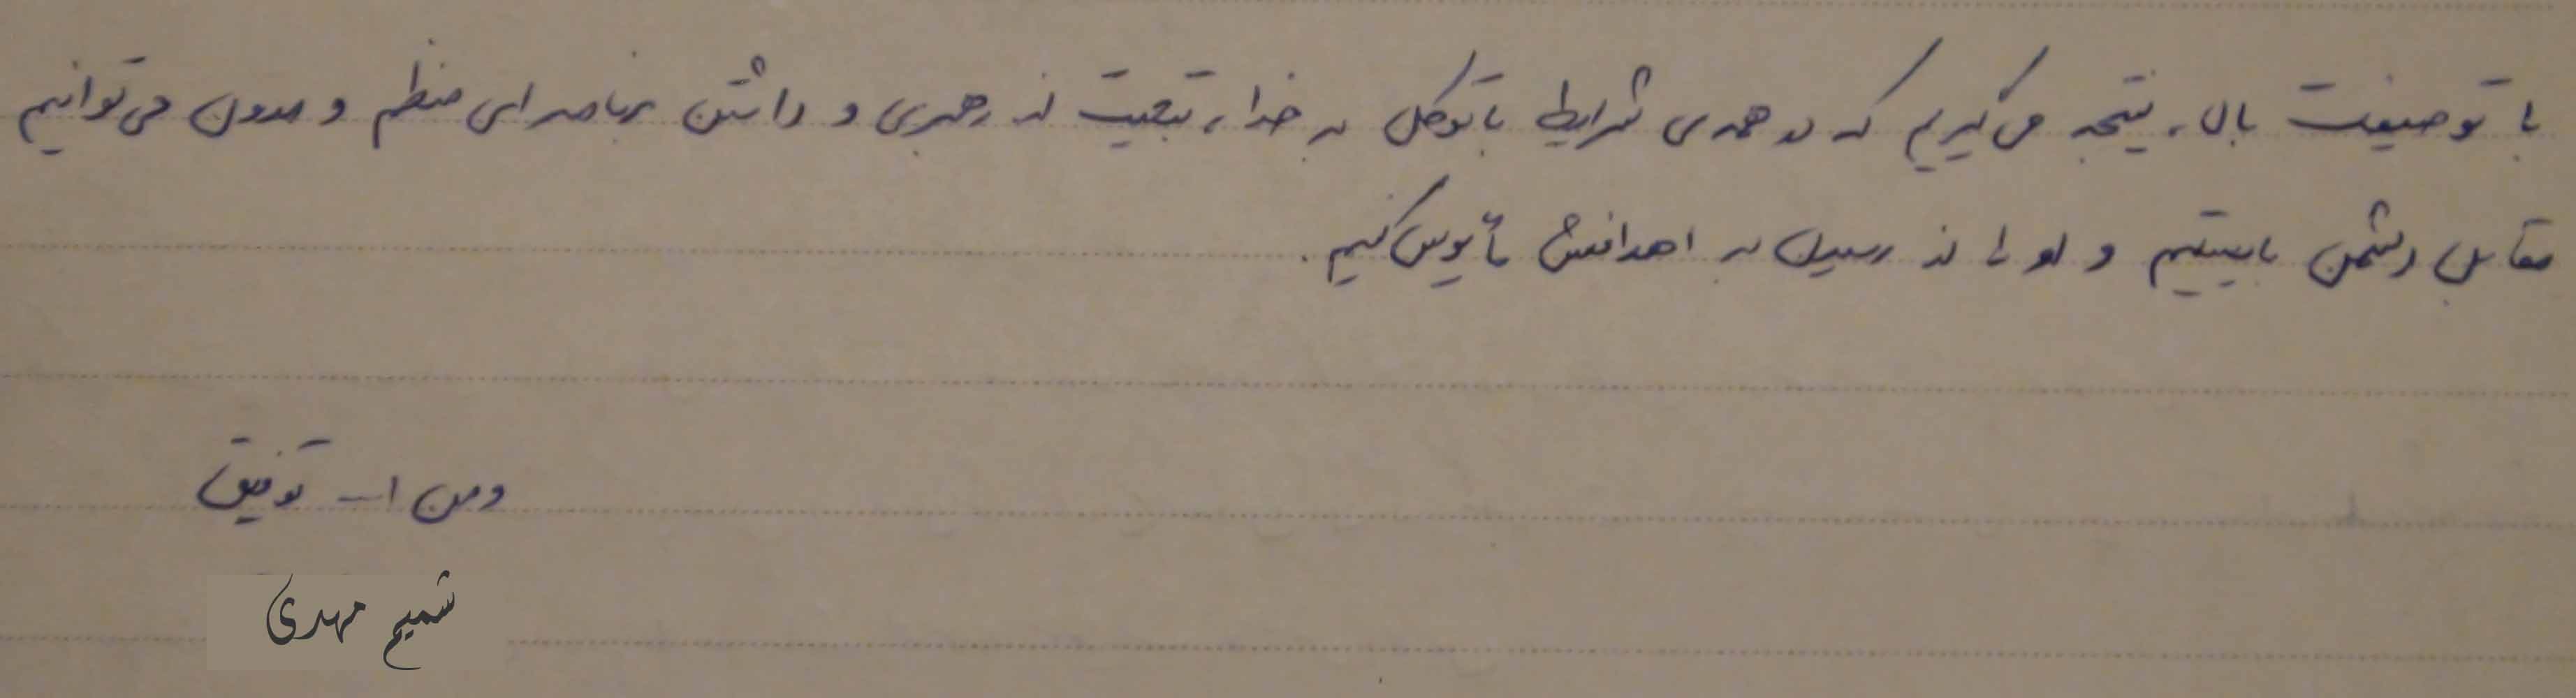 با توصیفات بالا، نتیجه می‌گیریم که در همه‌ی شرایط با توکل به خدا، تبعیت از رهبری و داشتن برنامه‌ای منظم و مدون می‌توانیم
مقابل دشمن بایستیم و او را از رسیدن به اهدافش مأیوس کنیم.
ومن ا... توفیق
شمیم مهدی